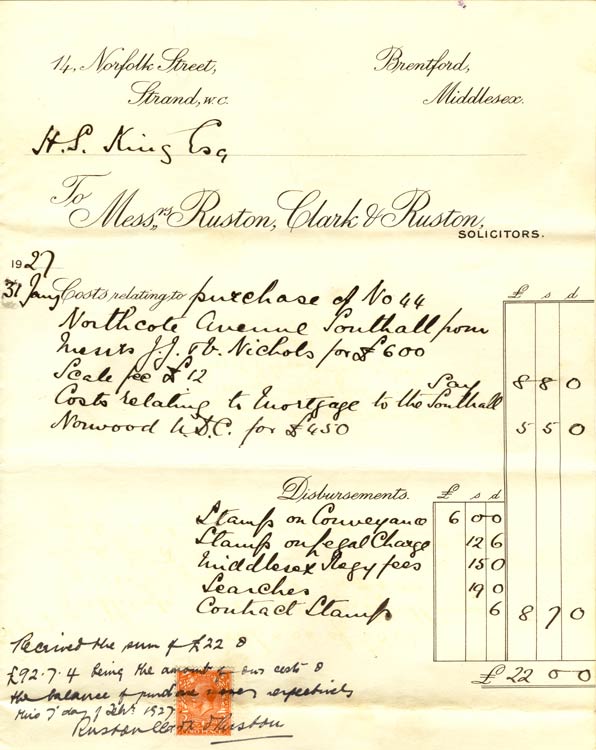 14, Norfolk Street, Brentford,
Strand, W.C. Middlesex.
H.S. King Esq
To Messrs. Ruston, Clark & Ruston,
SOLICITORS.
1927 £ s d
31 Jany Costs relating to purchase of No 44
Northcote Avenue Southall from
Messrs J.J. & V. Nichols for £600
Scale fee £12 Say 8 8 0
Costs relating to Mortgage to the Southall
Norwood U.D.C. for £450 5 5 0
Disbursements. £ s d
Stamp on Conveyance 6 0 0
Stamp on Legal Charge 12 6
Middlesex Regy fees 15 0
Searches 19 0
Contract Stamp 6 8 7 0
£22 0 0
Received the sum of £22 &
£92.7.4 being the amount of our costs &
the balance of purchase money respectively
this 7 day of Feby 1927
Ruston Clark & Ruston